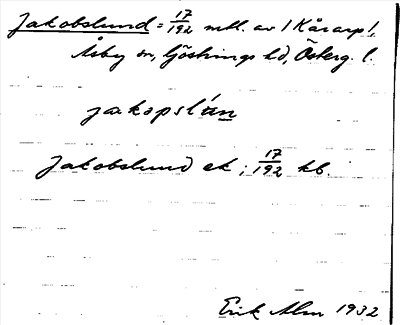 Jakobslund = 17/192 mtl. av 1 Kårarp 1,
Åsby sn, Göstrings hd, Österg. l.
jakopslún
Jakobslund ek ; 17/192 kb.
Erik Alm 1932